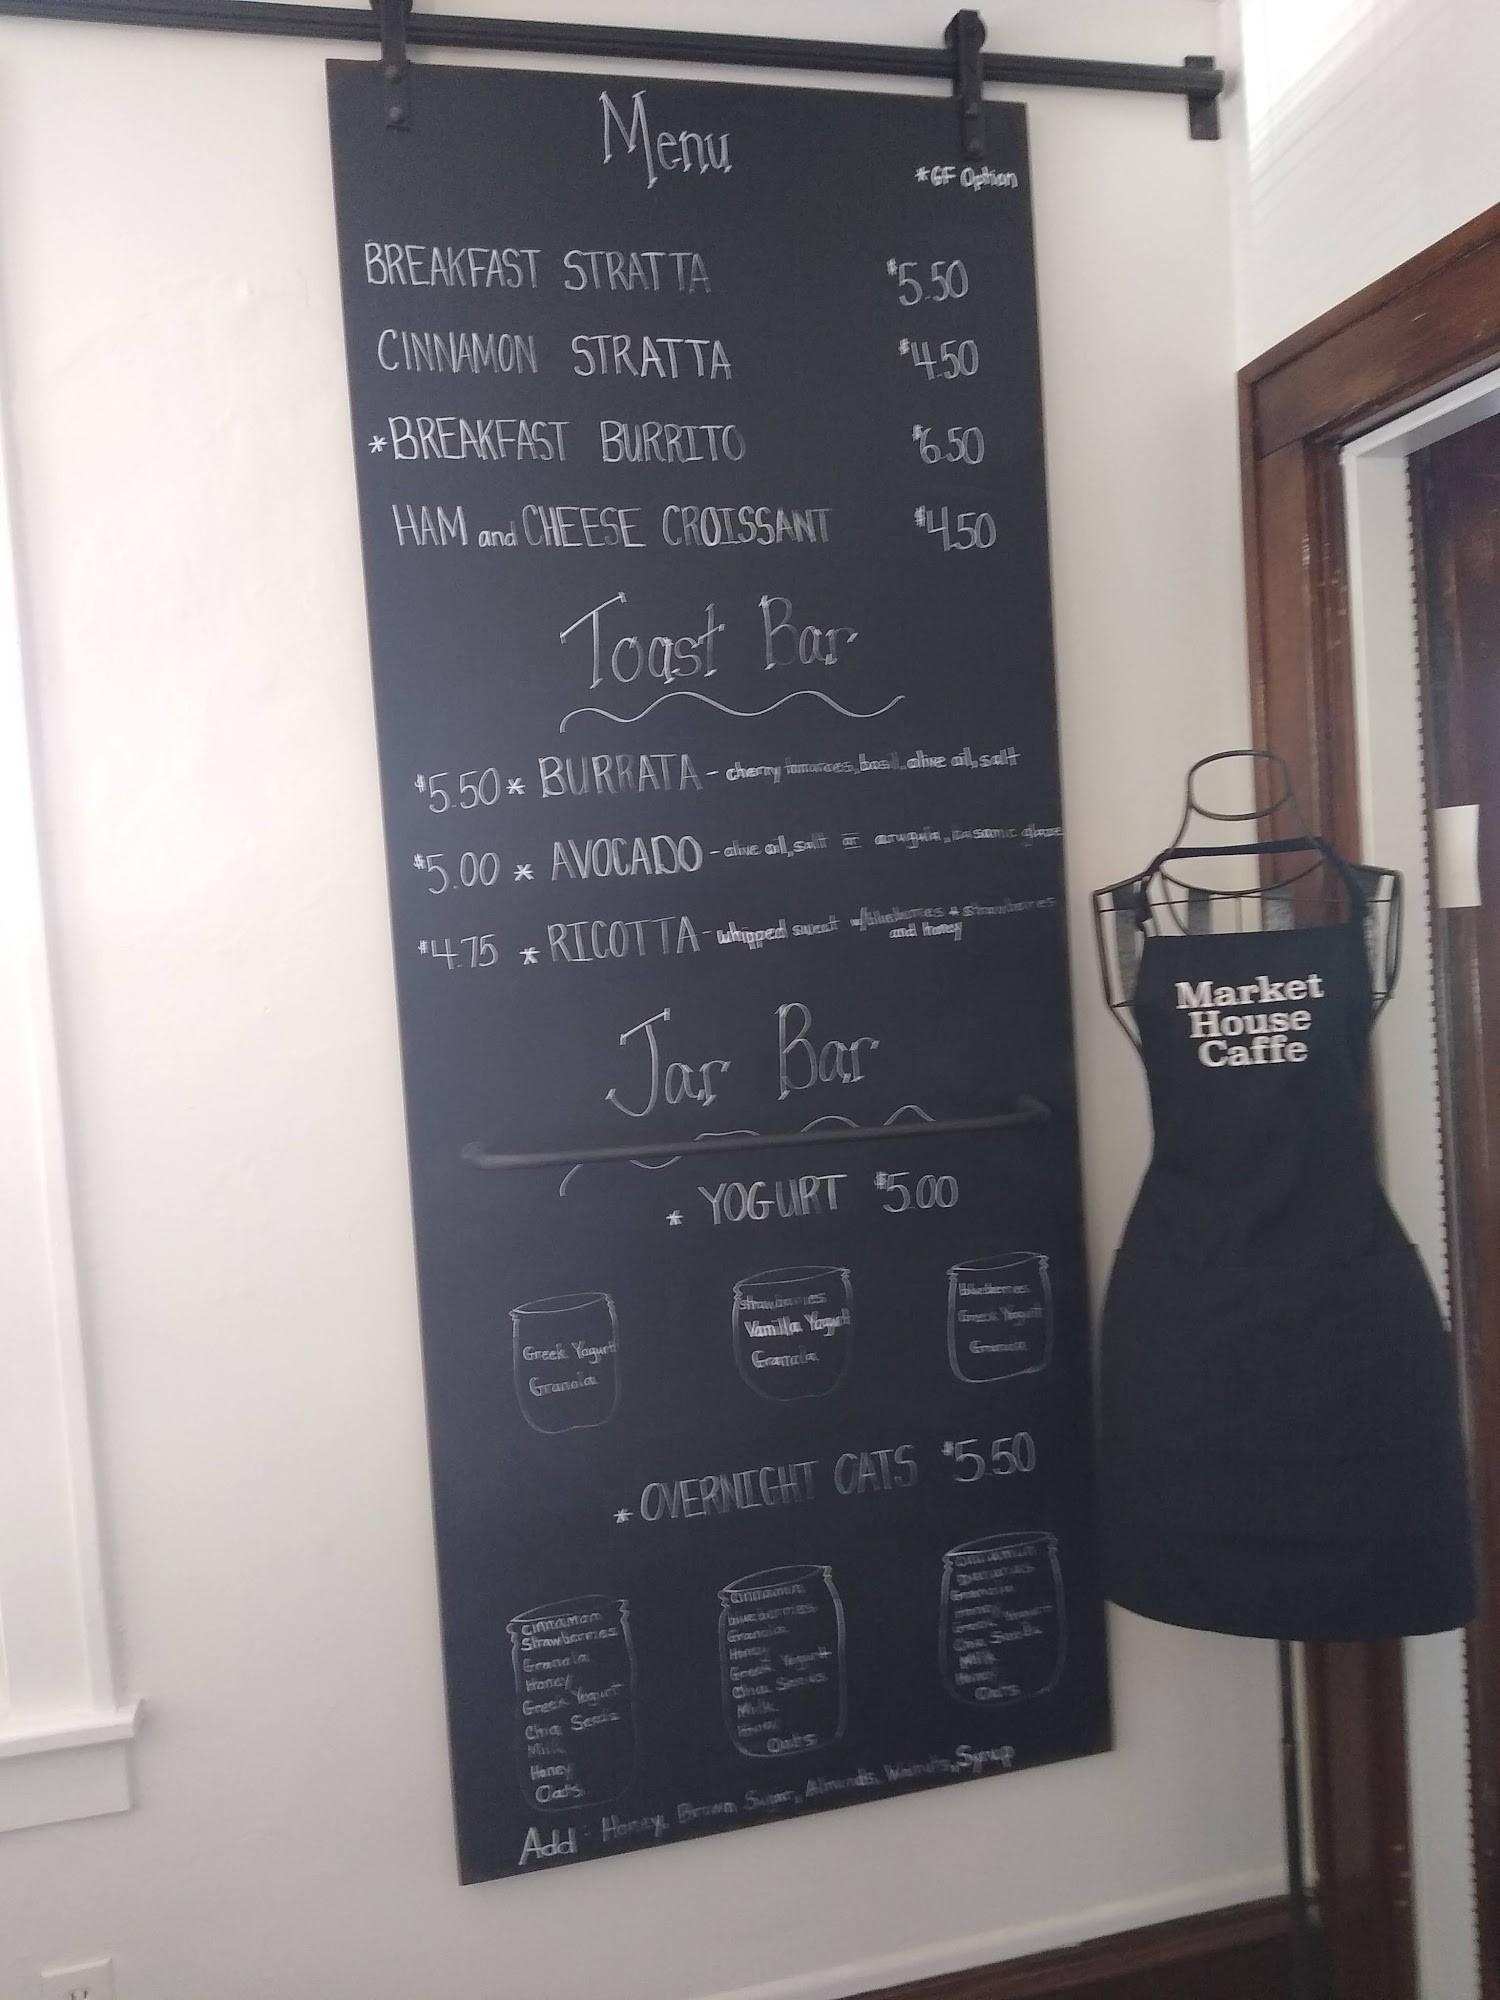 Menu
*GF Option
BREAKFAST STRATTA $5.50
CINNAMON STRATTA $4.50
*BREAKFAST BURRITO $6.50
HAM and CHEESE CROISSANT $4.50
Toast Bar
$5.50 * BURRATA - cherry tomatoes, basil, olive oil, salt
$5.00 * AVOCADO - olive oil, salt or arugula, balsamic glaze
$4.75 * RICOTTA - whipped sweet w/blueberries + strawberries
and honey
Jar Bar
* YOGURT $5.00
Greek Yogurt
Granola
strawberries
Vanilla Yogurt
Granola
blueberries
Greek Yogurt
Granola
* OVERNIGHT OATS $5.50
cinnamon
Strawberries
Granola
Honey
Greek Yogurt
Chia Seeds
Milk
Honey
Oats
cinnamon
blueberries
Granola
Honey
Greek Yogurt
Chia Seeds
Milk
Honey
Oats
cinnamon
bananas
Granola
Honey
Greek Yogurt
Chia Seeds
Milk
Honey
Oats
Add: Honey, Brown Sugar, Almonds, Walnuts, Syrup
Market
House
Caffe